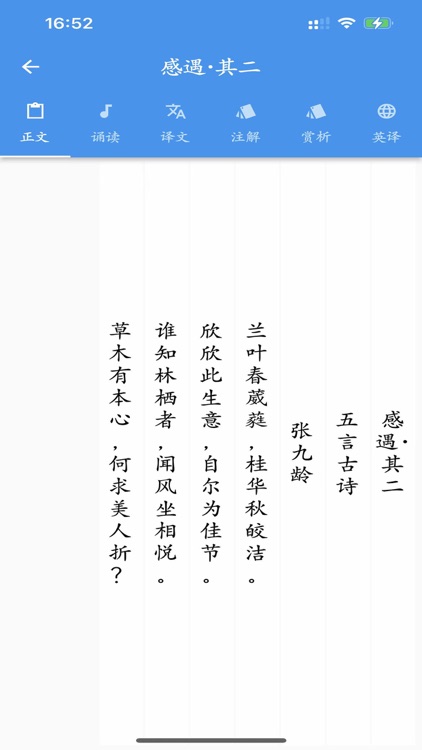 16:52
感遇·其二
正文
诵读
译文
注解
赏析
英译
感遇·其二
五言古诗
张九龄
兰叶春葳蕤，桂华秋皎洁。
欣欣此生意，自尔为佳节。
谁知林栖者，闻风坐相悦。
草木有本心，何求美人折？